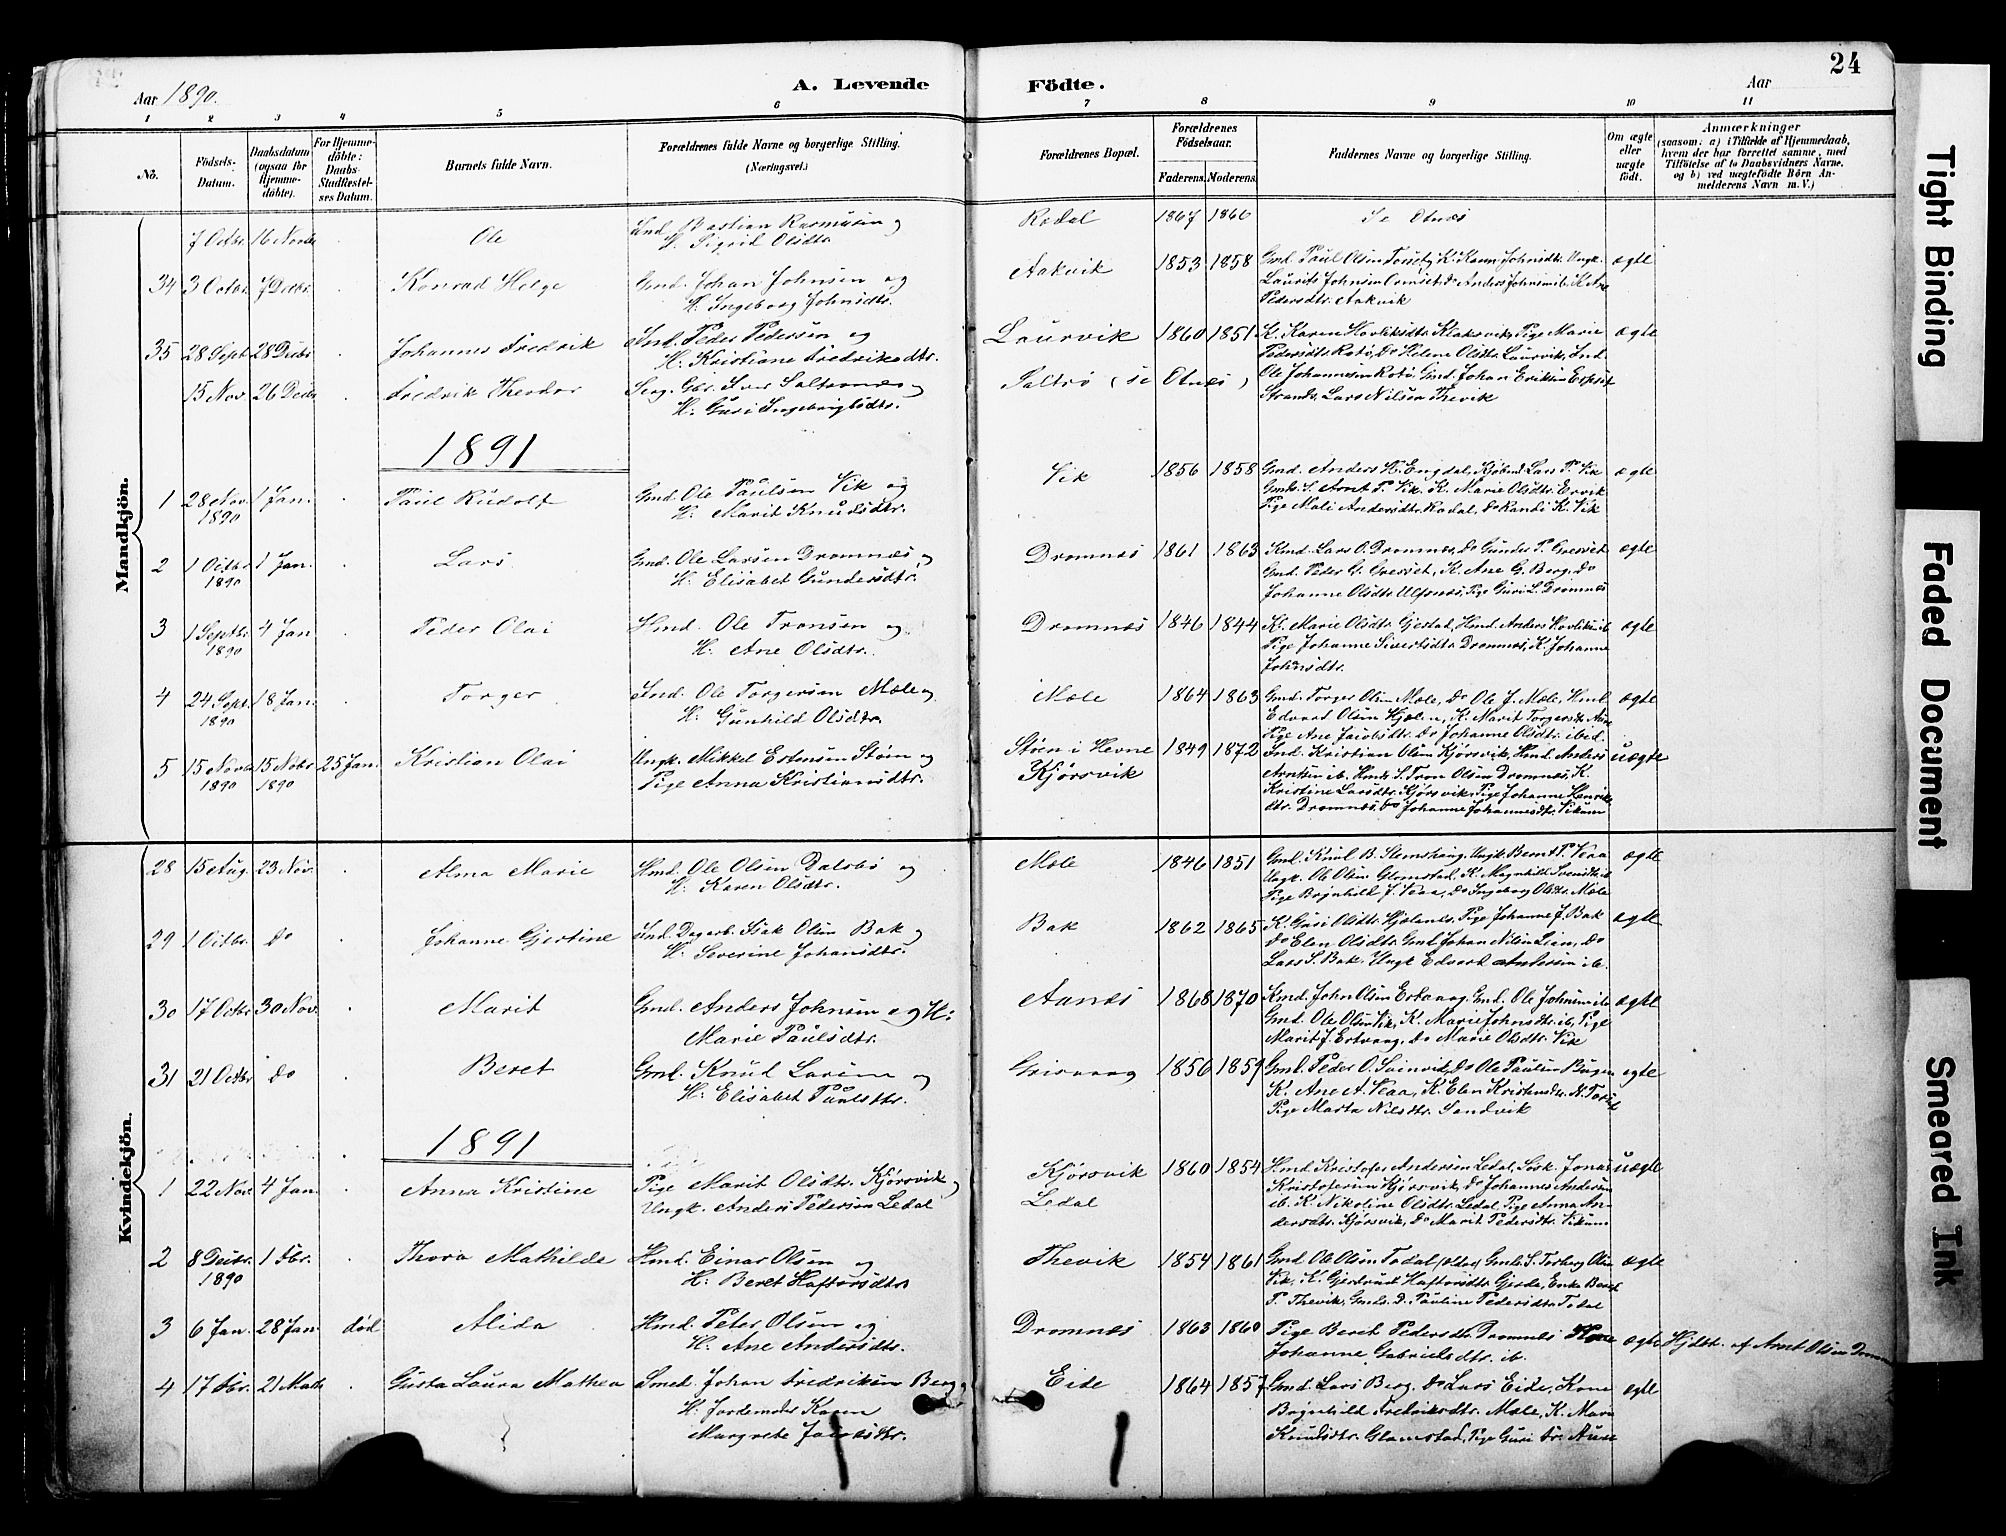 24
Aar 1890.
A. Levende Födte.
Aar
1 2 3 4 5 6 7 8 9 10 11
No.
Födsels-Datum.
Daabsdatum (ogsaa for Hjemme-döbte).
For Hjemme-döbte: Daabs-Stadfæstel-ses Datum.
Barnets fulde Navn.
Forældrenes fulde Navne og borgerlige Stilling. (Næringsvei.)
Forældrenes Bopæl.
Forældrenes Födselsaar.
Faderens. Moderens.
Faddernes Navne og borgerlige Stilling.
Om ægte eller uægte födt.
Anmærkninger
(saasom: a) i Tilfælde af Hjemmedaab, hvem der har forrettet samme, med Tilföielse af to Daabsvidners Navne, og b) ved uægtefödte Börn Anmelderens Navn m. V.)
Mandkjön.
7 Octbr. 16 Novbr. Ole
Ind. Bastian Rasmusen og
H. Sigrid Olsdtr.
Rodal 1867 1866 Se Otnes
34 3 Octbr. 7 Decbr. Konrad Helge
Gmd. Johan Johnsen og
H. Ingeborg Johnsdtr.
Aakvik 1853 1858
Gmd. Paul Olsen Torset, K. Karen Johnsdtr. Ungk.
Pedersdtr. Aakvik
ægte
35 28 Sept. 28 Decbr. Johannes Fredrik
Ind. Peder Pedersen og
H. Kristiane Fredriksdtr.
Laurvik 1860 1851
Pige Marie
Pedersdtr. Rotø, Do Helene Olsdtr. Laurvik, Ind.
Ole Johannesen Rotø, Gmd. Johan Eriksen Espset
Strand, Lars Nilsen Thevik
ægte
15 Nov. 26 Decbr. Fredrik Theodor
H. Guri Ingebrigtsdtr.
Saltrø (se Otnes)
1891
1 28 Nov. 1890 1 Jan. Paul Rudolf
Gmd. Ole Paulsen Vik og
H. Marit Knudsdtr.
Vik 1856 1858
Gmd. Anders H. Engdal, Kjøbmd. Lars P. Vik
Gmds. S. Arnt P. Vik. K. Marie Olsdtr. Ervik
Pige Mali Andersdtr. Rodal, Do Randi K. Vik
ægte
2 1 Octbr. 1890 1 Jan. Lars
Gmd. Ole Larsen Dromnes og
H. Elisabet Gundersdtr.
Dromnes 1861 1863
Kmd. Lars O. Dromnes, Do Gunder P. Gresset
Gmd. Peder G. Gresset, K. Ane G. Berg, Do
Johanne Olsdtr. Ulfsnes, Pige Guri L. Dromnes
ægte
3 1 Septbr. 1890 4 Jan. Peder Olai
Hmd. Ole Tronsen og
H. Ane Olsdtr.
Dromnes 1846 1844
K. Marie Olsdtr. Gjestad, Hmd. Anders
Pige Johanne Sivertsdtr. Dromnes, K. Johanne
Johnsdtr.
ægte
4 24 Sept. 1890 18 Jan. Torger
Ind. Ole Torgersen Mæle og
H. Gunhild Olsdtr.
Mæle 1864 1863
Gmd. Torger Olsen Mæle, Do Ole J. Mæle, Hmd.
Edvard Olsen Hjelen, K. Marit Torgersdtr.
Pige Ane Jacobsdtr. Do Johanne Olsdtr. ibid.
ægte
5 15 Novbr. 1890 15 Nobr. 1890 25 Jan. Kristian Olai
Ungk. Mikkel Estensen Støen og
Pige Anna Kristiansdtr.
Støen i Hevne
Kjørsvik
1849 1872
Ind. Kristian Olsen Kjørsvik, Hmd. Anders
Arntsen ib. Hmds. S. Tron Olsen Dromnes, K.
Kristine Larsdtr. Kjørsvik, Pige Johanne Henriks
dtr. Dromnes, Do Johanne Johannesdtr. Vikum
uægte
Kvindekjön.
28 15 Aug. 23 Nov. Alma Marie
Hmd. Ole Olsen Dalsbø og
H. Karen Olsdtr.
Mæle 1846 1851
Gmd. Knut B. Stemshaug, Ungk. Bernt P. Veaa
Ungk. Ole Olsen Glamstad, K. Magnhild
Pige Brynhild J. Veaa, Do Ingeborg Olsdtr. Mæle
ægte
29 1 Octbr. do Johanne Gjertine
Ind. Isak Olsen Bak og
H. Severine Johansdtr.
Bak 1862 1865
K. Guri Olsdtr. Hjelnes, Pige Johanne J. Bak
Do Elen Olsdtr. Gmd. Johan Nilsen Lien, Do
Lars S. Bak. Ungk. Edvart Andersen ib.
ægte
30 17 Octbr. 30 Nov. Marit
Gmd. Anders Johnsen og H:
Marie Paulsdtr.
Aanes 1868 1870
Kmd. John Olsen Ertvaag, Gmd. Ole Johnsen ib.
Gmd. Ole Olsen Vik, K. Marie Johnsdtr. ib, Pige
Marit J. Ertvaag, Do Marie Olsdtr. Vik
ægte
31 21 Octbr. do Beret
Gmd. Knud Larsen og
H. Elisabet Paulsdtr.
Grisvaag 1856 1859
Gmd. Peder O. Do Ole Paulsen
K. Ane A. Veaa, K. Elen
Pige Marta Nilsdtr. Sandvik
ægte
1891
1 22 Nov. 4 Jan. Anna Kristine
Pige Marit Olsdtr. Kjørsvik og
Ungk. Anders Pedersen Ledal
Kjørsvik
Ledal
1860 1854
Hmd. Kristofer Andersen Ledal, Jonas
Kristofersen Kjørsvik, Do Johannes Andersen
ib. K. Nikoline Olsdtr. Ledal, Pige Anna An-
dersdtr. Kjørsvik, Do Marit Pedersdtr. Vikum
uægte
2 8 Decbr. 1890 1 Fbr. Thora Mathilde
Hmd. Einar Olsen og
H. Beret Haftorsdtr.
Thevik 1854 1861
Gmd. Ole Olsen Todal Gmds. S. Torberg Olsen
Vik, K. Gjertrud Haftorsdtr. Gjerde, Enke Beret
P. Thevik, Gmds. D. Pauline Pedersdtr. Todal
ægte
3 6 Jan. 28 Jan. død Alida
Hmd. Peter Olsen og
H. Ane Andersdtr.
Dromnes 1863 1860
Pige Beret Pedersdtr. Dromnes Kone
Johanne Gabrielsdtr. ib.
ægte Hjdbt. af Arnt Olsen
4 17 Fbr. 21 Marts Gusta Laura Mathea
Smed. Johan Fredriksen Berg og
H. Jordemoder Karen
Margrete Jacobsdtr.
Eide 1864 1857
Gmd. Lars Berg, Do Lars Eide, Kone
Brynhild Fredriksdtr. Mæle, K. Mari
Knudsdtr. Glamstad, Pige Guri Aure
ægte
Tight Binding
Faded Document
Smeared Ink